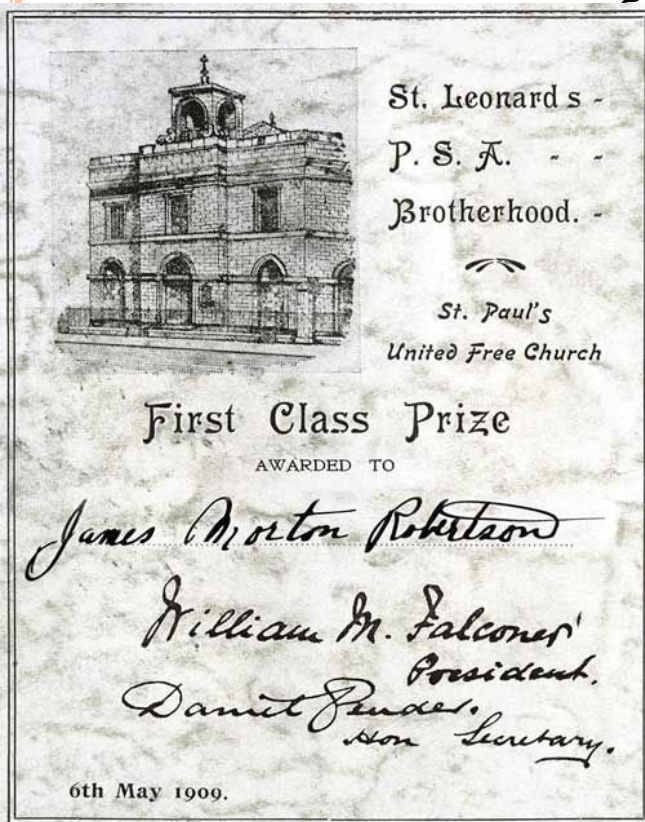 St. Leonard s -
P. S. A. - -
Brotherhood. -
St. Paul's
United Free Church
First Class Prize
AWARDED TO
James Morton Robertson
William M. Falconer
President.
Daniel Pender.
Hon Secretary.
6th May 1909.